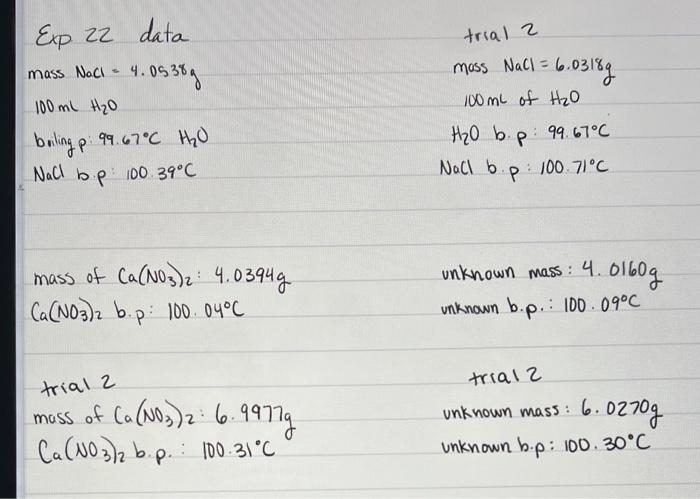 Exp 22 data
mass NaCl = 4.0538g
100 mL H₂O
boiling p: 99.67°C H₂O
NaCl b.p: 100.39°C
trial 2
mass NaCl = 6.0318g
100 mL of H₂O
H₂O b.p: 99.67°C
NaCl b.p: 100.71°C
mass of Ca(NO₃)₂: 4.0394g
Ca(NO₃)₂ b.p: 100.04°C
unknown mass: 4.0160g
unknown b.p.: 100.09°C
trial 2
mass of Ca(NO₃)₂: 6.9977g
Ca(NO₃)₂ b.p.: 100.31°C
trial 2
unknown mass: 6.0270g
unknown b.p: 100.30°C